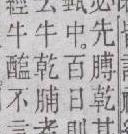 必先膊乾其
甄中。百日則
牛乾脯者
經牛醢不言